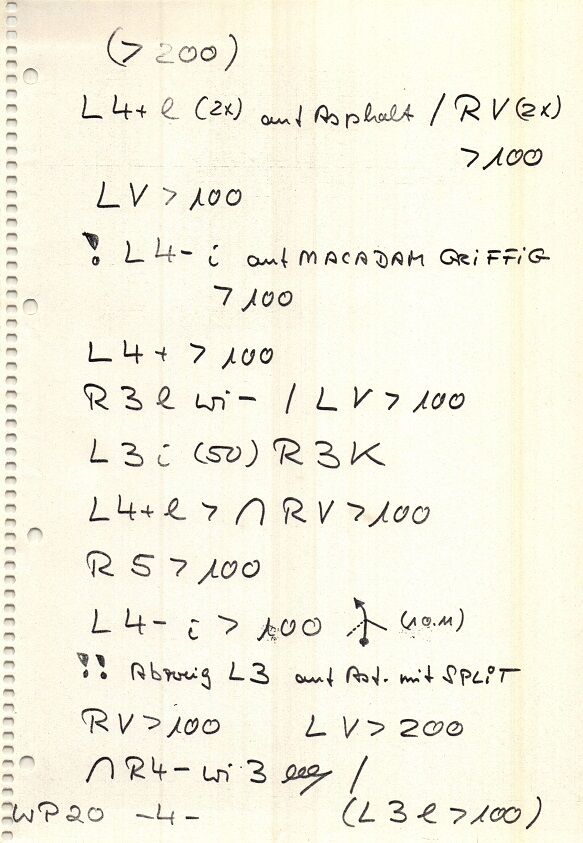 (> 200)
L4+ l (2x) auf Asphalt / RV (2x)
>100
LV > 100
! L4- i auf MACADAM GRiFFiG
> 100
L4+ > 100
R3 l wi- / LV > 100
L3 i (50) R3K
L4+ l > ∩ RV > 100
R5 > 100
L4- i > 100 (10.11)
!! Abzweig L3 auf Ast. mit SPLiT
RV > 100 LV > 200
∩ R4- wi 3 /
WP20 -4- (L3 l > 100)